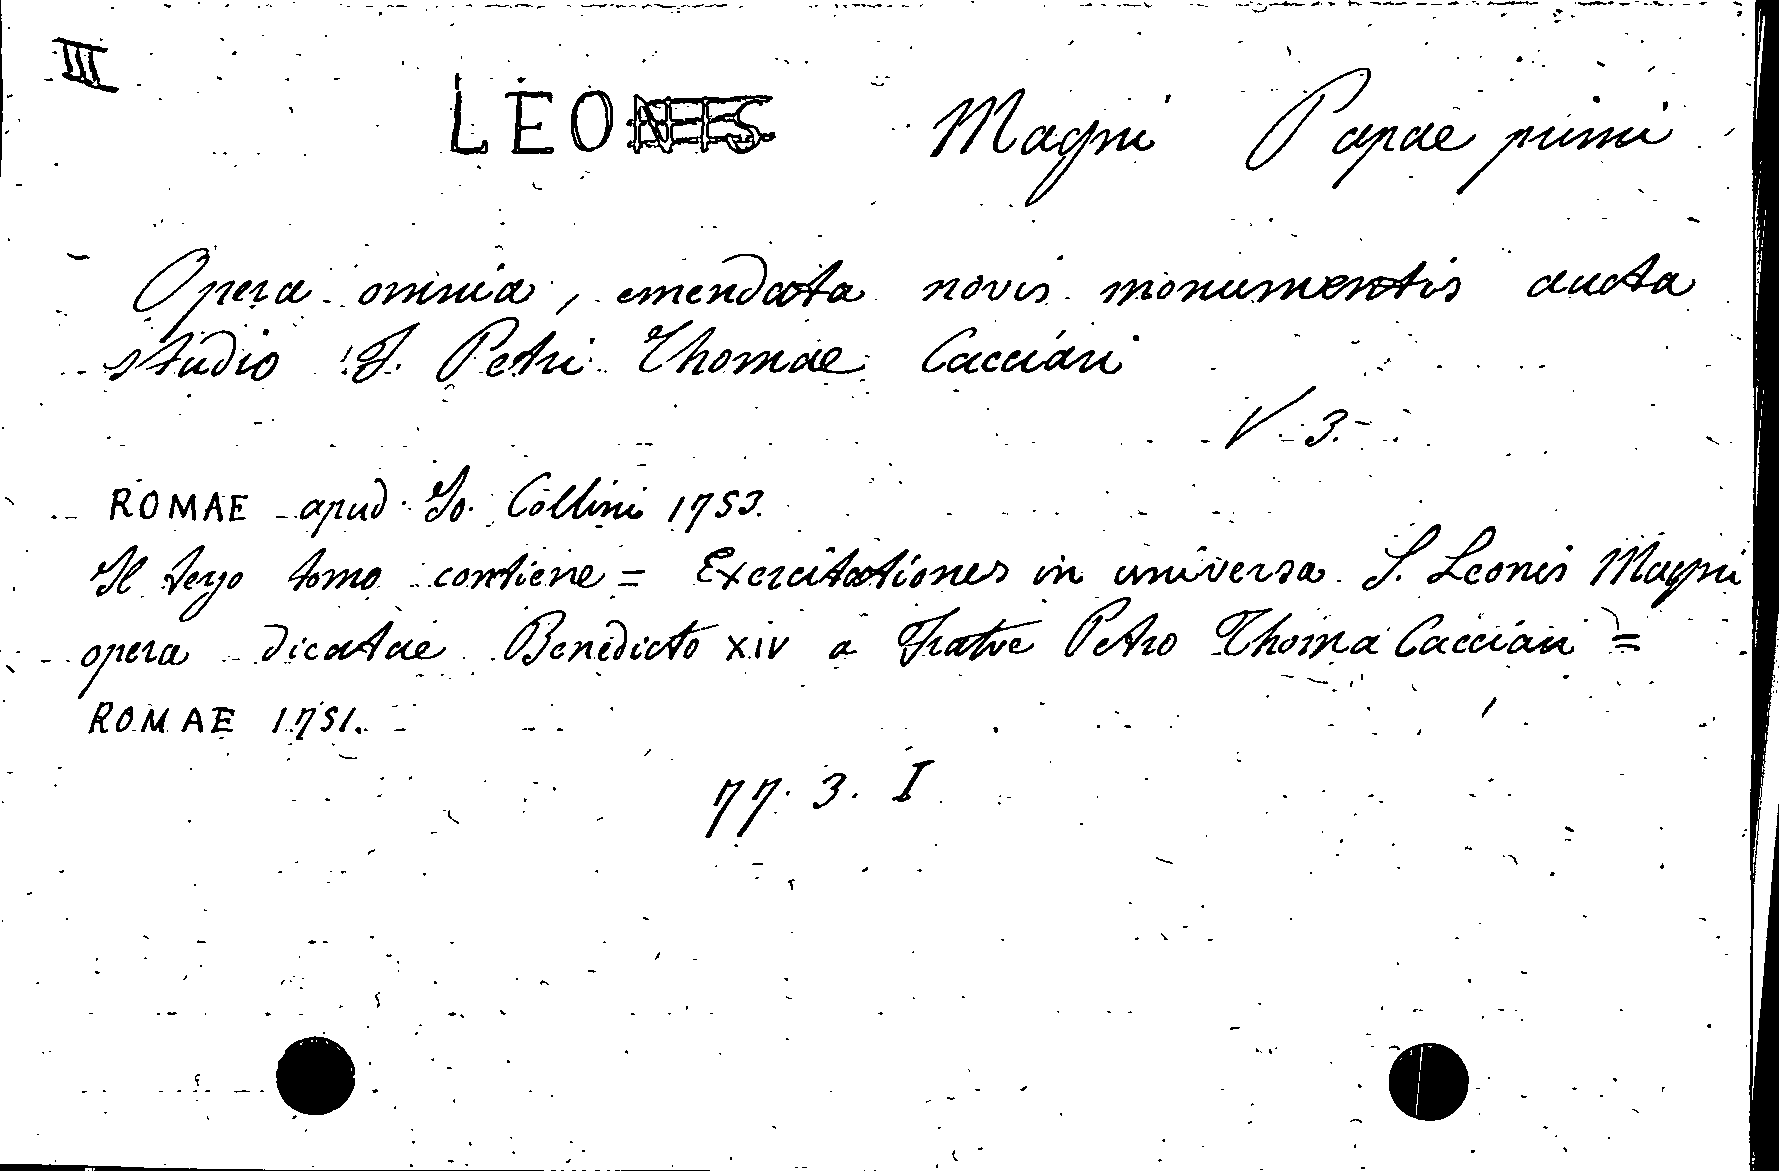 III
LEONIS Magni Papae primi
Opera omnia, emendata novis monumentis aucta
studio F. Petri Thomae Cacciari
V. 3.
ROMAE apud Io. Collini 1753.
Il terzo tomo contiene = Exercitationes in universa S. Leonis Magni
opera dicatae Benedicto XIV a Fratre Petro Thoma Cacciari =
ROMAE 1751.
77. 3. I